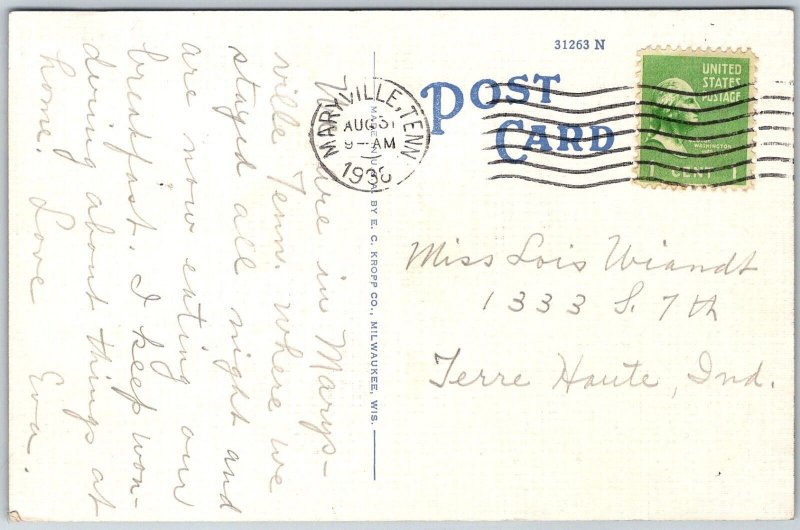 31263 N
POST
CARD
UNITED
STATES
POSTAGE
WASHINGTON
1 CENT 1
MARYVILLE, TENN.
AUG 31
9 - AM
MADE IN U.S.A. BY E. C. KROPP CO., MILWAUKEE, WIS.
are in Marys-
ville Tenn. where we
stayed all night and
are now eating our
breakfast. I keep won-
dering about things at
home. Love
Eva.
Miss Lois Wiandt
1333 S. 7th
Terre Haute, Ind.